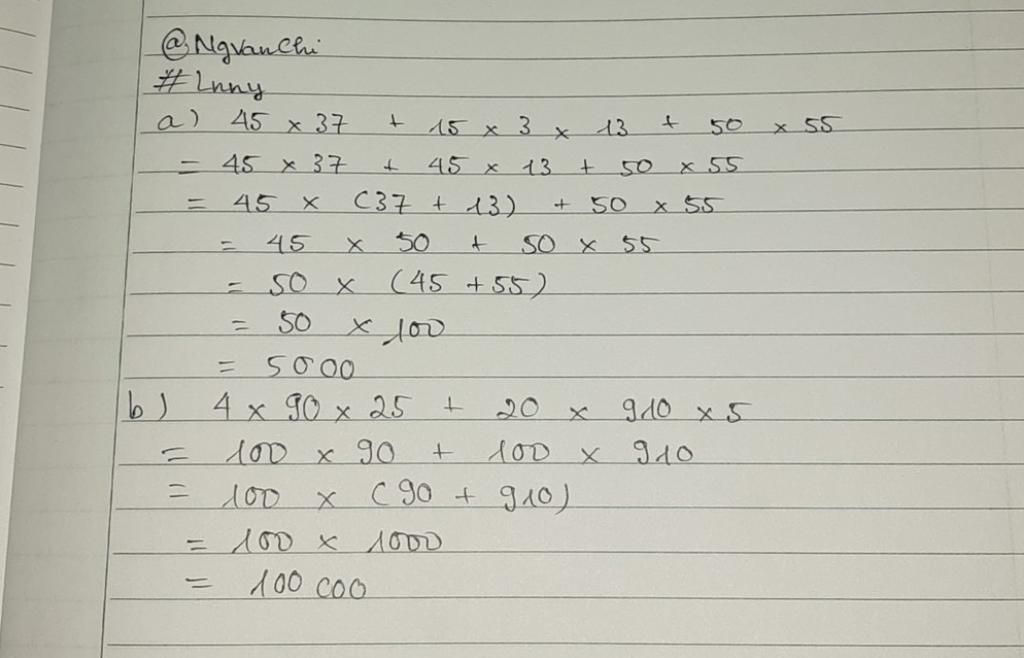 @NgvanChi
#Lnny
a) 45 × 37 + 15 × 3 × 13 + 50 × 55
= 45 × 37 + 45 × 13 + 50 × 55
= 45 × (37 + 13) + 50 × 55
= 45 × 50 + 50 × 55
= 50 × (45 + 55)
= 50 × 100
= 5000
b) 4 × 90 × 25 + 20 × 910 × 5
= 100 × 90 + 100 × 910
= 100 × (90 + 910)
= 100 × 1000
= 100 000